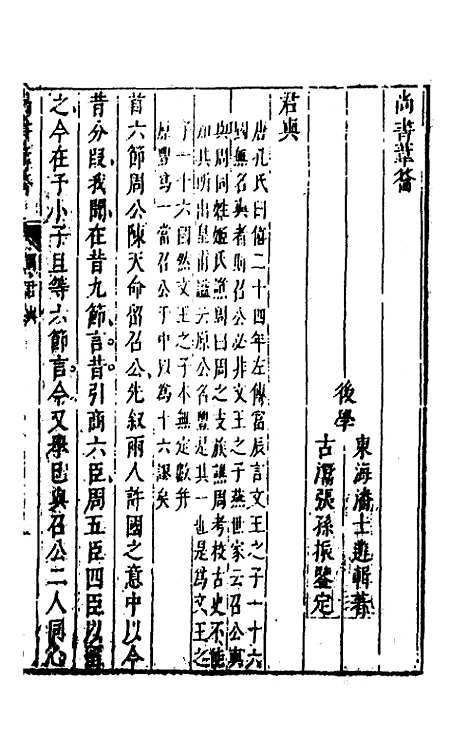 尚書葦籥
後學
東海潘士遴輯著
古潭張孫振鑒定
君奭
唐孔氏曰僖二十四年左傳富辰言文王之子一十六
國無名奭者則召公必非文王之子燕世家云召公奭
與周同姓姬氏譙周曰周之支族譙周考校古史不能
知其所出皇甫謐云原公名豐是其一也是為文王之
子一十六國然文王之子本無定數并
原豐為一當召公于中以為十六謬矣
首六節周公陳天命留召公先叙兩人許國之意中以今
昔分段我聞在昔九節言昔引商六臣周五臣四臣以
之今在予小子旦等六節言今又舉已與召公二人同心